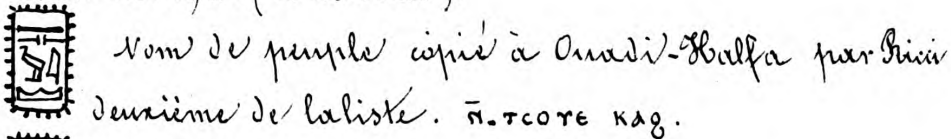 Nom de peuple copié à Ouadi-Halfa par Ricci
deuxième de la liste. ⲛ̄.ⲧⲥⲟⲧⲉ ⲕⲁϩ.